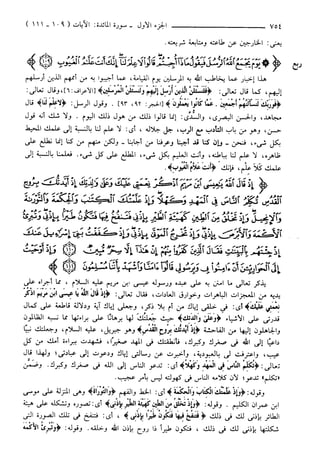 ٧٥٤
الجزء الاول - سورة المائدة: الآيات ( ١٠٩ - ١١١ )
يعني: الخارجين عن طاعته ومتابعة شريعته.
ربع
﴿يَوْمَ يَجْمَعُ اللَّهُ الرُّسُلَ فَيَقُولُ مَاذَا أُجِبْتُمْ قَالُوا لَا عِلْمَ لَنَا إِنَّكَ أَنتَ عَلَّامُ الْغُيُوبِ﴾
هذا إخبار عما يخاطب الله به المرسلين يوم القيامة، عما أجيبوا به من أممهم الذين أرسلهم
إليهم، كما قال تعالى: ﴿فَلَنَسْأَلَنَّ الَّذِينَ أُرْسِلَ إِلَيْهِمْ وَلَنَسْأَلَنَّ الْمُرْسَلِينَ﴾ (الأعراف: ٦)، وقال تعالى:
﴿فَوَرَبِّكَ لَنَسْأَلَنَّهُمْ أَجْمَعِينَ. عَمَّا كَانُوا يَعْمَلُونَ﴾ (الحجر: ٩٢، ٩٣) . وقول الرسل: ﴿لَا عِلْمَ لَنَا﴾ قال
مجاهد، والحسن البصري، والسدي: إنما قالوا ذلك من هول ذلك اليوم . ولا شك أنه قول
حسن، وهو من باب التأدب مع الرب، جل جلاله ، أي: لا علم لنا بالنسبة إلى علمك المحيط
بكل شيء، فنحن - وإن كنا قد أجبنا وعرفنا من أجابنا - ولكن منهم من كنا إنما نطلع على
ظاهره، لا علم لنا بباطنه، وأنت العليم بكل شيء، المطلع على كل شيء. فعلمنا بالنسبة إلى
علمك كلا علم، فإنك ﴿أَنتَ عَلَّامُ الْغُيُوبِ﴾.
﴿إِذْ قَالَ اللَّهُ يَا عِيسَى ابْنَ مَرْيَمَ اذْكُرْ نِعْمَتِي عَلَيْكَ وَعَلَىٰ وَالِدَتِكَ إِذْ أَيَّدتُّكَ بِرُوحِ
الْقُدُسِ تُكَلِّمُ النَّاسَ فِي الْمَهْدِ وَكَهْلًا وَإِذْ عَلَّمْتُكَ الْكِتَابَ وَالْحِكْمَةَ وَالتَّوْرَاةَ وَالْإِنجِيلَ
وَإِذْ تَخْلُقُ مِنَ الطِّينِ كَهَيْئَةِ الطَّيْرِ بِإِذْنِي فَتَنفُخُ فِيهَا فَتَكُونُ طَيْرًا بِإِذْنِي وَتُبْرِئُ
الْأَكْمَهَ وَالْأَبْرَصَ بِإِذْنِي وَإِذْ تُخْرِجُ الْمَوْتَىٰ بِإِذْنِي وَإِذْ كَفَفْتُ بَنِي إِسْرَائِيلَ عَنكَ
إِذْ جِئْتَهُم بِالْبَيِّنَاتِ فَقَالَ الَّذِينَ كَفَرُوا مِنْهُمْ إِنْ هَٰذَا إِلَّا سِحْرٌ مُّبِينٌ وَإِذْ أَوْحَيْتُ
إِلَى الْحَوَارِيِّينَ أَنْ آمِنُوا بِي وَبِرَسُولِي قَالُوا آمَنَّا وَاشْهَدْ بِأَنَّنَا مُسْلِمُونَ﴾
يذكر تعالى ما امتن به على عبده ورسوله عيسى ابن مريم عليه السلام ، مما أجراه على
يديه من المعجزات الباهرات وخوارق العادات، فقال تعالى: ﴿إِذْ قَالَ اللَّهُ يَا عِيسَى ابْنَ مَرْيَمَ اذْكُرْ
نِعْمَتِي عَلَيْكَ﴾ أي: في خلقي إياك من أم بلا ذكر، وجعلي إياك آية ودلالة قاطعة على كمال
قدرتي على الأشياء ﴿وَعَلَىٰ وَالِدَتِكَ﴾ حيث جعلتك لها برهانًا على براءتها مما نسبه الظالمون
والجاهلون إليها من الفاحشة ﴿إِذْ أَيَّدتُّكَ بِرُوحِ الْقُدُسِ﴾ وهو جبريل، عليه السلام، وجعلتك نبيًا
داعيًا إلى الله في صغرك وكبرك، فأنطقتك في المهد صغيرًا، فشهدت ببراءة أمك من كل
عيب، واعترفت لي بالعبودية، وأخبرت عن رسالتي إياك ودعوت إلى عبادتي؛ ولهذا قال
تعالى: ﴿تُكَلِّمُ النَّاسَ فِي الْمَهْدِ وَكَهْلًا﴾ أي: تدعو الناس إلى الله في صغرك وكبرك. وضمن
"تكلم" تدعو، لأن كلامه الناس في كهولته ليس بأمر عجيب.
وقوله: ﴿وَإِذْ عَلَّمْتُكَ الْكِتَابَ وَالْحِكْمَةَ﴾ أي: الخط والفهم ﴿وَالتَّوْرَاةَ﴾ وهي المنزلة على موسى
ابن عمران الكليم . وقوله: ﴿وَإِذْ تَخْلُقُ مِنَ الطِّينِ كَهَيْئَةِ الطَّيْرِ بِإِذْنِي﴾ أي: تصوره وتشكله على هيئة
الطائر بإذني لك في ذلك ﴿فَتَنفُخُ فِيهَا فَتَكُونُ طَيْرًا بِإِذْنِي﴾ ، أي: فتنفخ في تلك الصورة التي
شكلتها بإذني لك في ذلك ، فتكون طيرًا ذا روح بإذن الله وخلقه. وقوله: ﴿وَتُبْرِئُ الْأَكْمَهَ